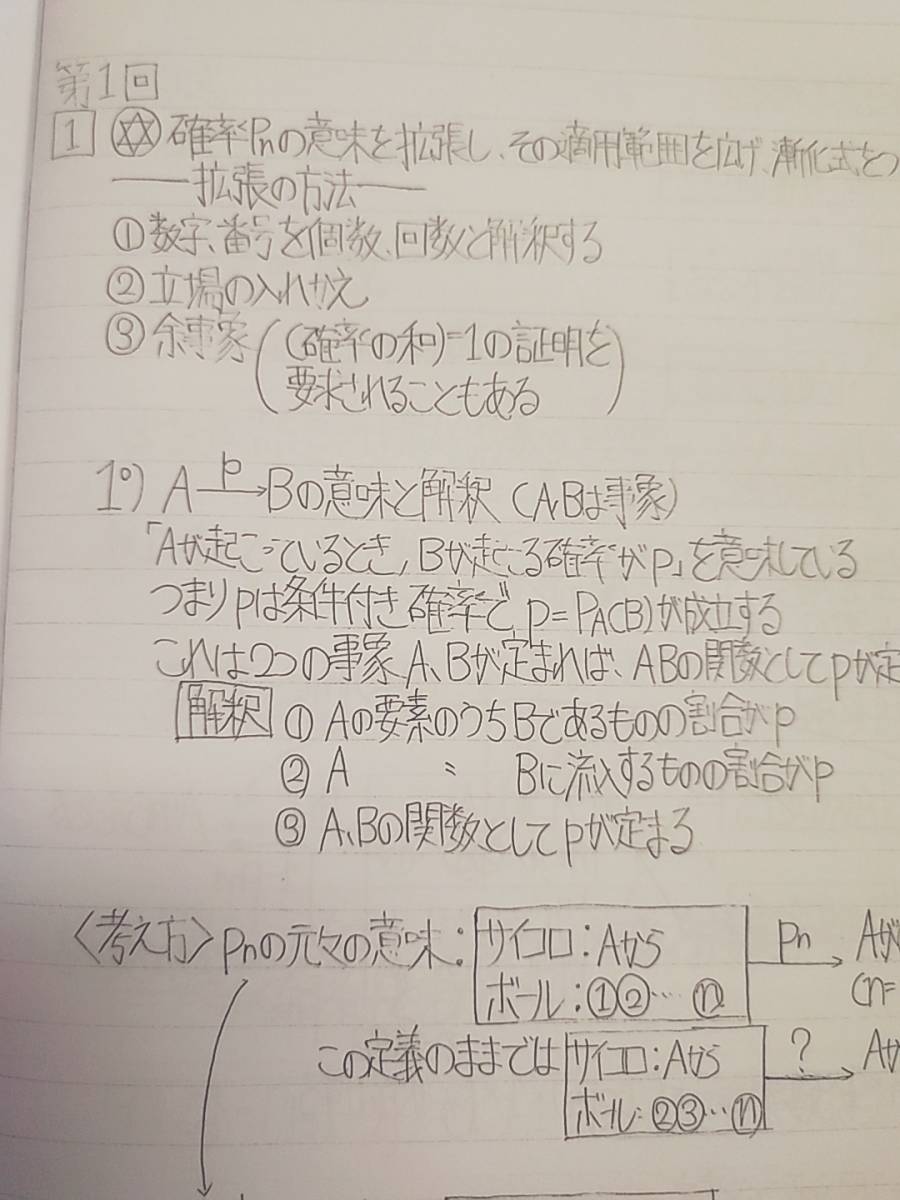 第1回
1 ✡ 確率Pnの意味を拡張し、その適用範囲を広げ、漸化式を
拡張の方法
① 数字、番号を個数、回数と解釈する
② 立場の入れかえ
③ 余事象((確率の和)=1の証明を
要求されることもある)
1°) A p→ Bの意味と解釈 (A、Bは事象)
「Aが起こっているとき, Bが起こる確率がp」を意味している
つまりpは条件付き確率で p=PA(B)が成立する
これは2つの事象A、Bが定まれば、ABの関数としてpが定
解釈 ① Aの要素のうちBであるものの割合がp
② A 〃 Bに流入するものの割合がp
③ A、Bの関数としてpが定まる
〈考え方〉 pnの元々の意味: サイコロ:Aから pn→ Aが
ボール:①②… ⓝ (n=
この定義のままでは サイコロ:Aから ?→ Aが
ボール:②③…ⓝ